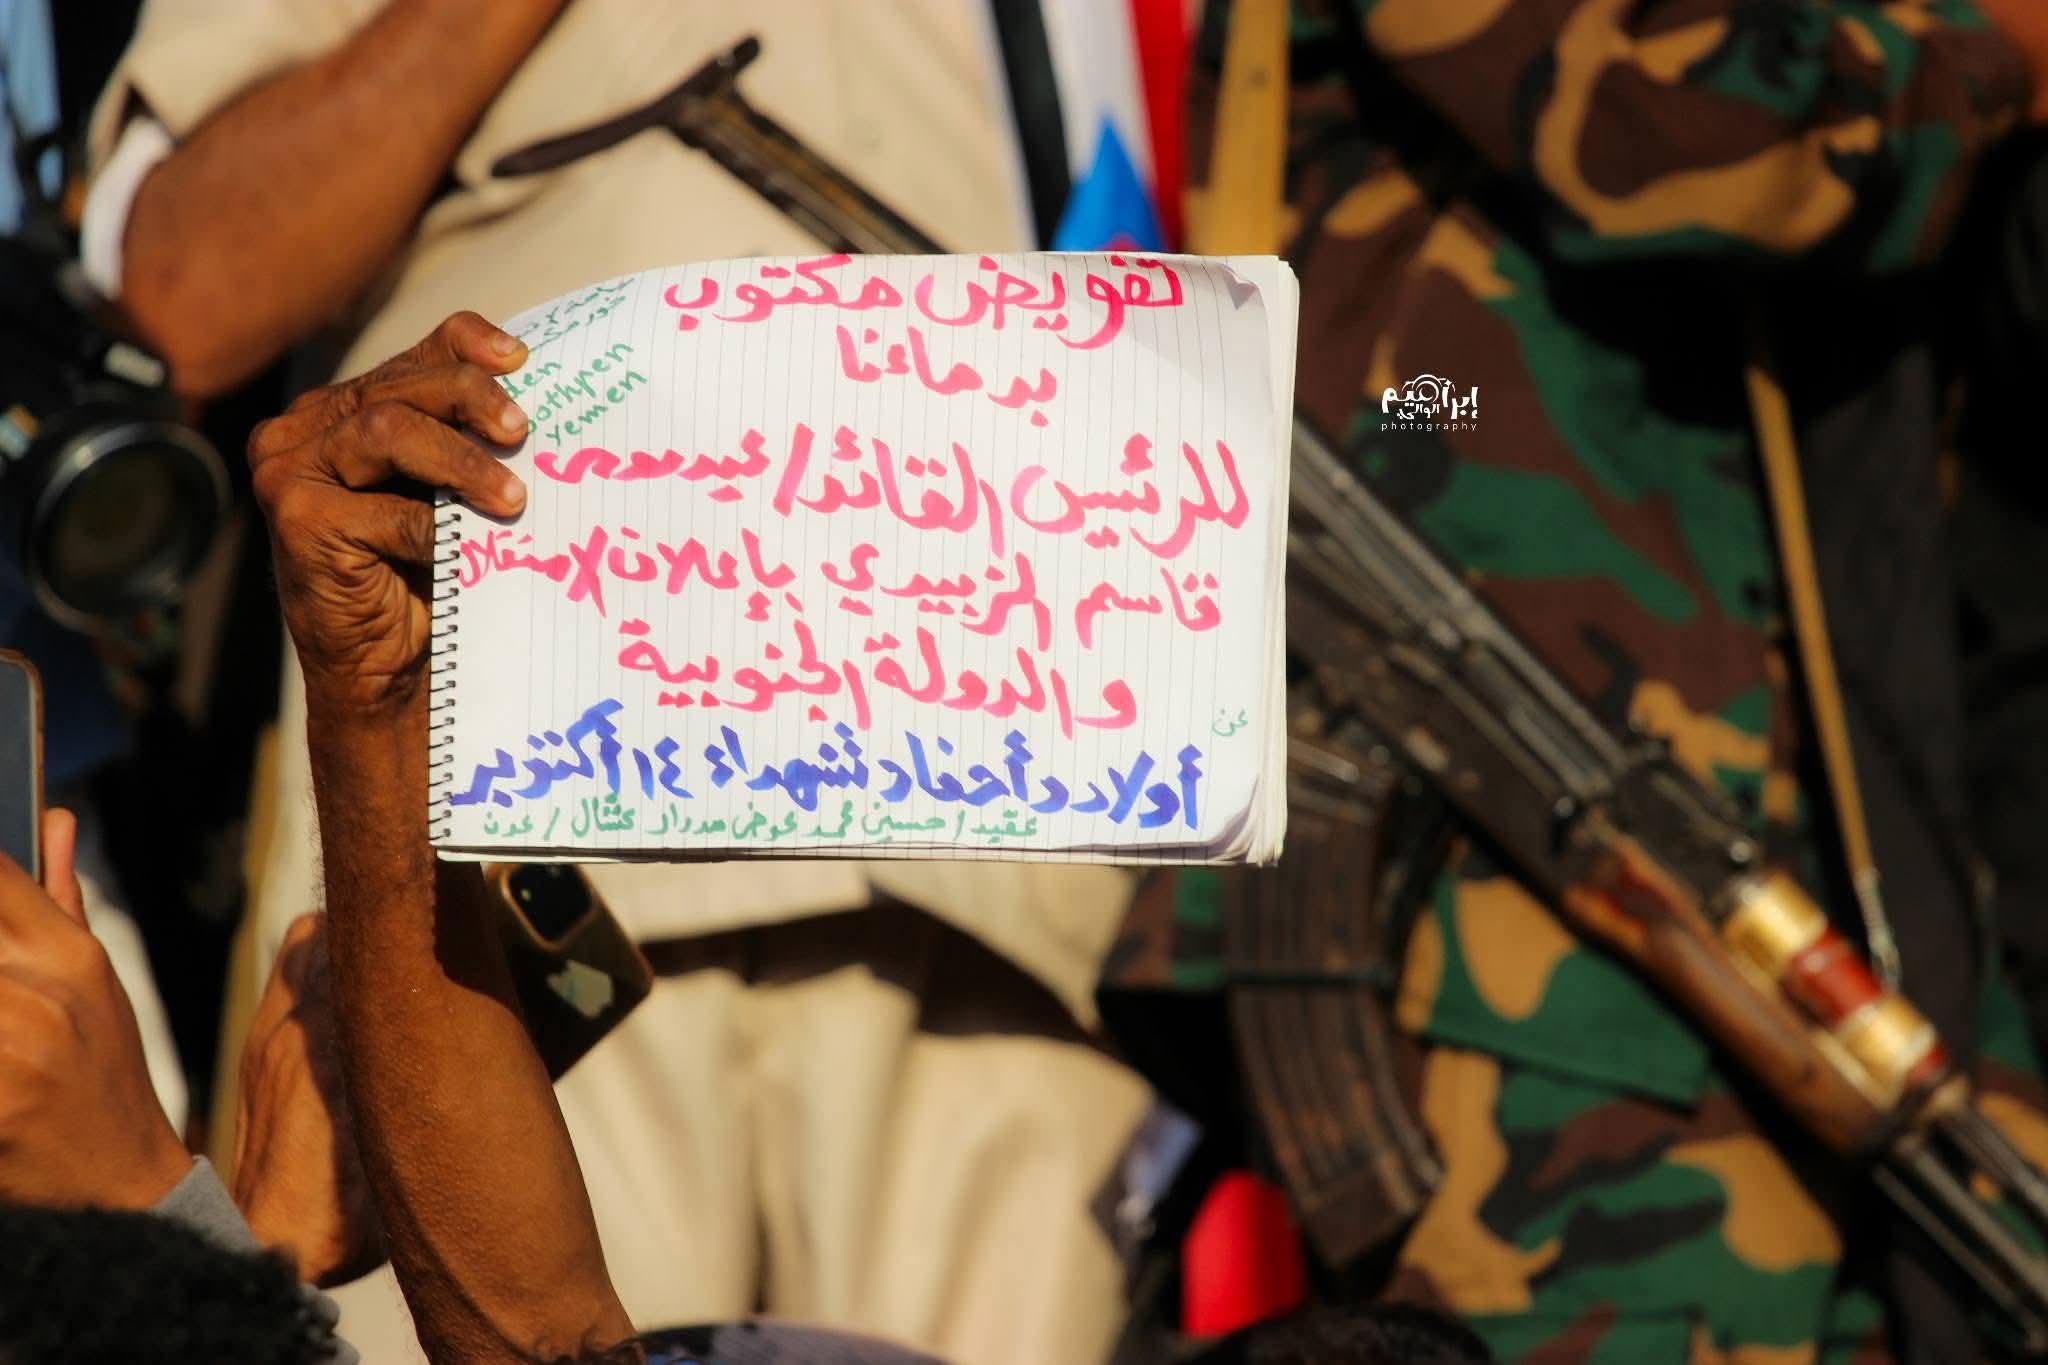 تفويض مكتوب
بدمائنا
للرئيس القائد/عيدروس
قاسم الزبيدي بإعلان الاستقلال
والدولة الجنوبية
عن
أولاد وأحفاد شهداء ١٤ أكتوبر
عقيد/حسين محمد عوض مدرار عشال/عدن
yemen
إبراهيم
الوالي
photography